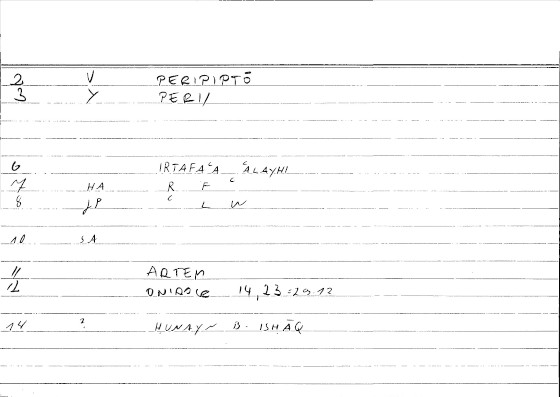 2 V PERIPIPTŌ
3 Y PERI/
6 IRTAFAʿA ʿALAYHI
7 HA R F ʿ
8 JP ʿ L W
10 SA
11 ARTEM
12 ONIROCR 14,23:29.12
14 ? HUNAYN B. ISHĀQ